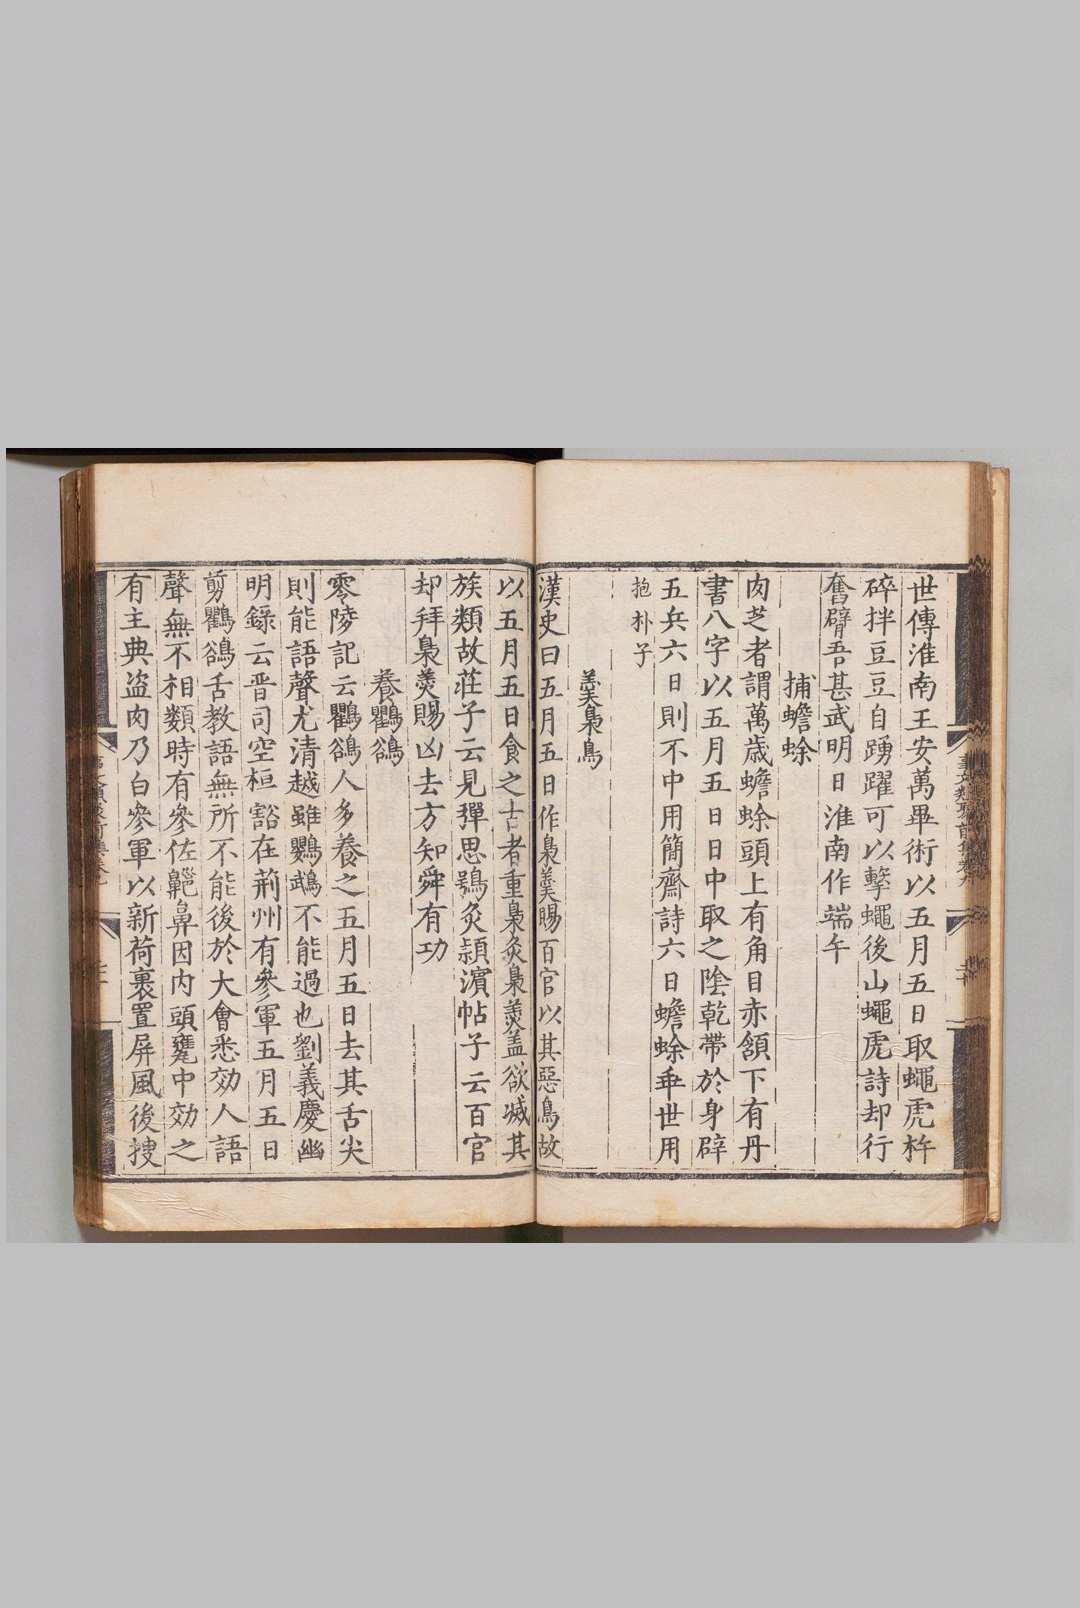 世傳淮南王安萬畢術以五月五日取蠅虎杵
碎拌豆豆自踴躍可以擊蠅後山蠅虎詩却行
奮臂吾甚武明日淮南作端午
捕蟾蜍
肉芝者謂萬歲蟾蜍頭上有角目赤頷下有丹
書八字以五月五日日中取之陰乾帶於身辟
五兵六日則不中用簡齋詩六日蟾蜍乖世用
抱朴子
羹梟鳥
漢史曰五月五日作梟羹賜百官以其惡鳥故
以五月五日食之古者重梟炙梟羹盖欲滅其
族類故莊子云見彈思鴞炙潁濱帖子云百官
却拜梟羹賜凶去方知舜有功
養鸜鵒
零陵記云鸜鵒人多養之五月五日去其舌尖
則能語聲尤清越雖鸚鵡不能過也劉義慶幽
明錄云晋司空桓豁在荊州有參軍五月五日
剪鸜鵒舌教語無所不能後於大會悉効人語
聲無不相類時有參佐齆鼻因内頭甕中効之
有主典盗肉乃白參軍以新荷裹置屏風後搜